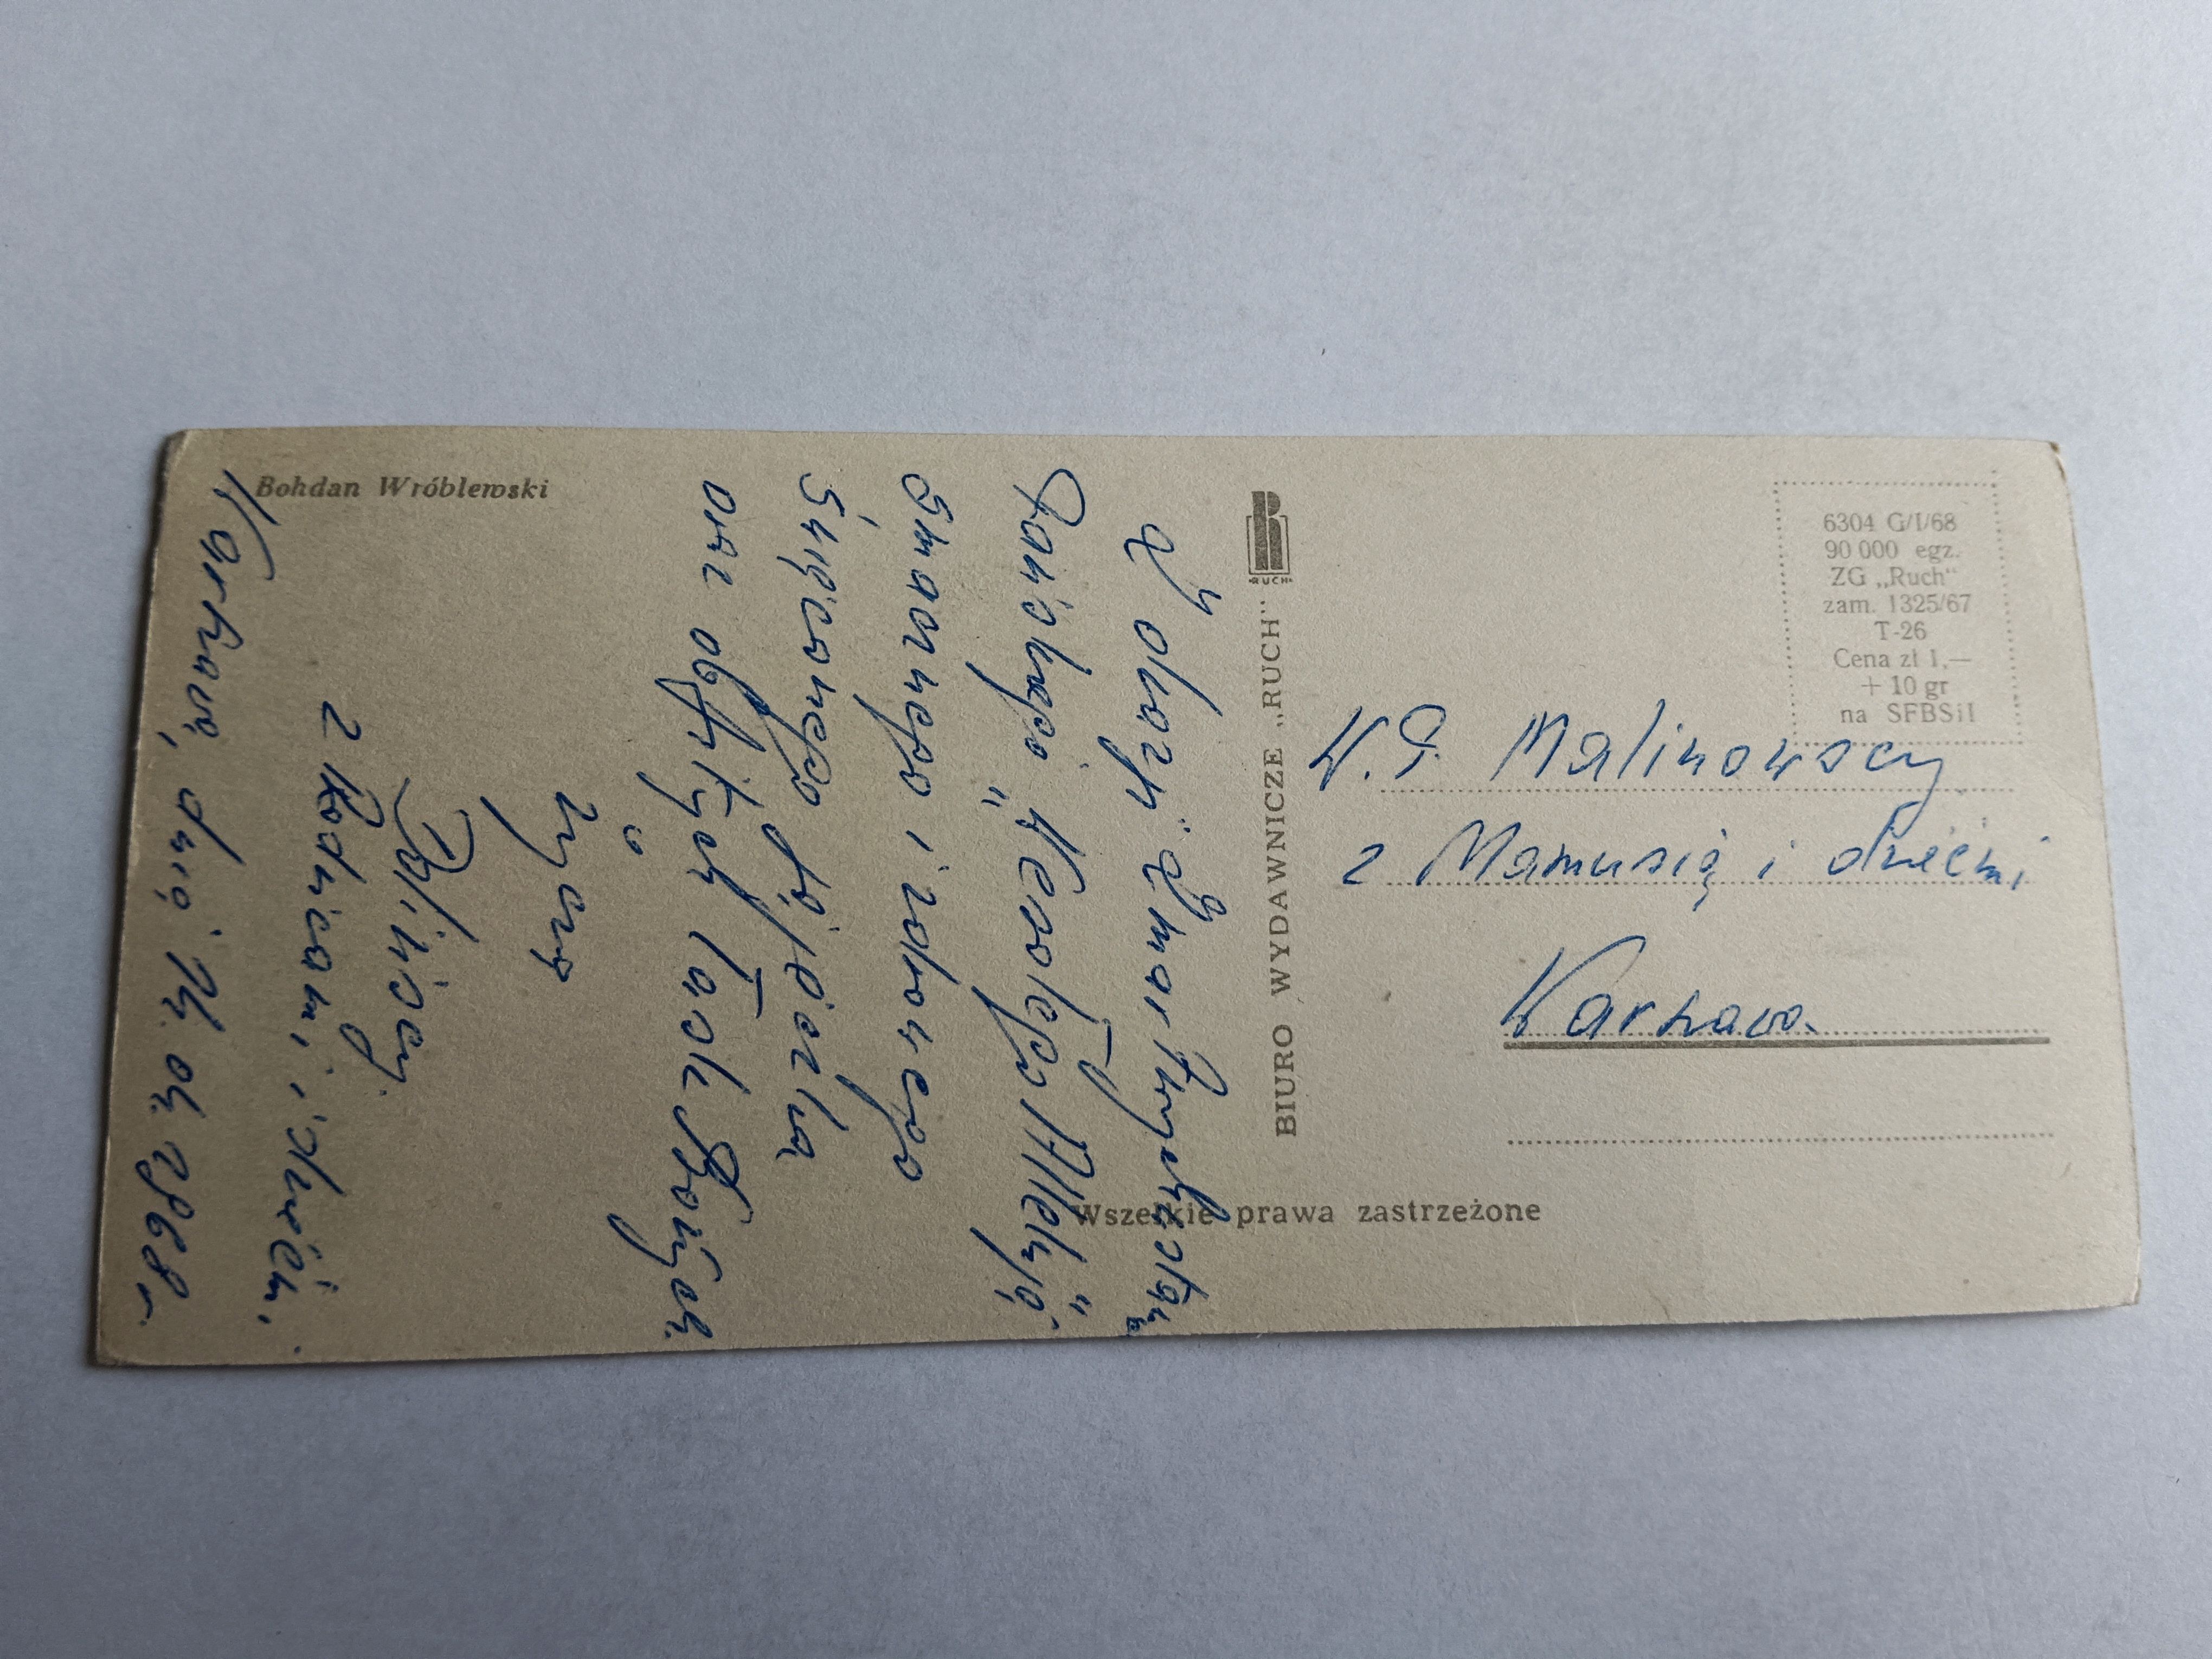 Bohdan Wróblewski
Z okazji Zmartwychwstania
Pańskiego „Wesołego Alleluja”
Smacznego i zdrowego
Święconego
oraz obfitych Łask Bożych
życzą
z Rodzicami i dziećmi
Warszawa, dnia 14. 04. 1968 r.
BIURO WYDAWNICZE „RUCH”
RUCH
6304 G/I/68
90 000 egz.
ZG „Ruch”
zam. 1325/67
T-26
Cena zł 1,—
+ 10 gr
na SFBSiI
W.P. Malinowscy
z Mamusią i dziećmi
Warszawa.
Wszelkie prawa zastrzeżone